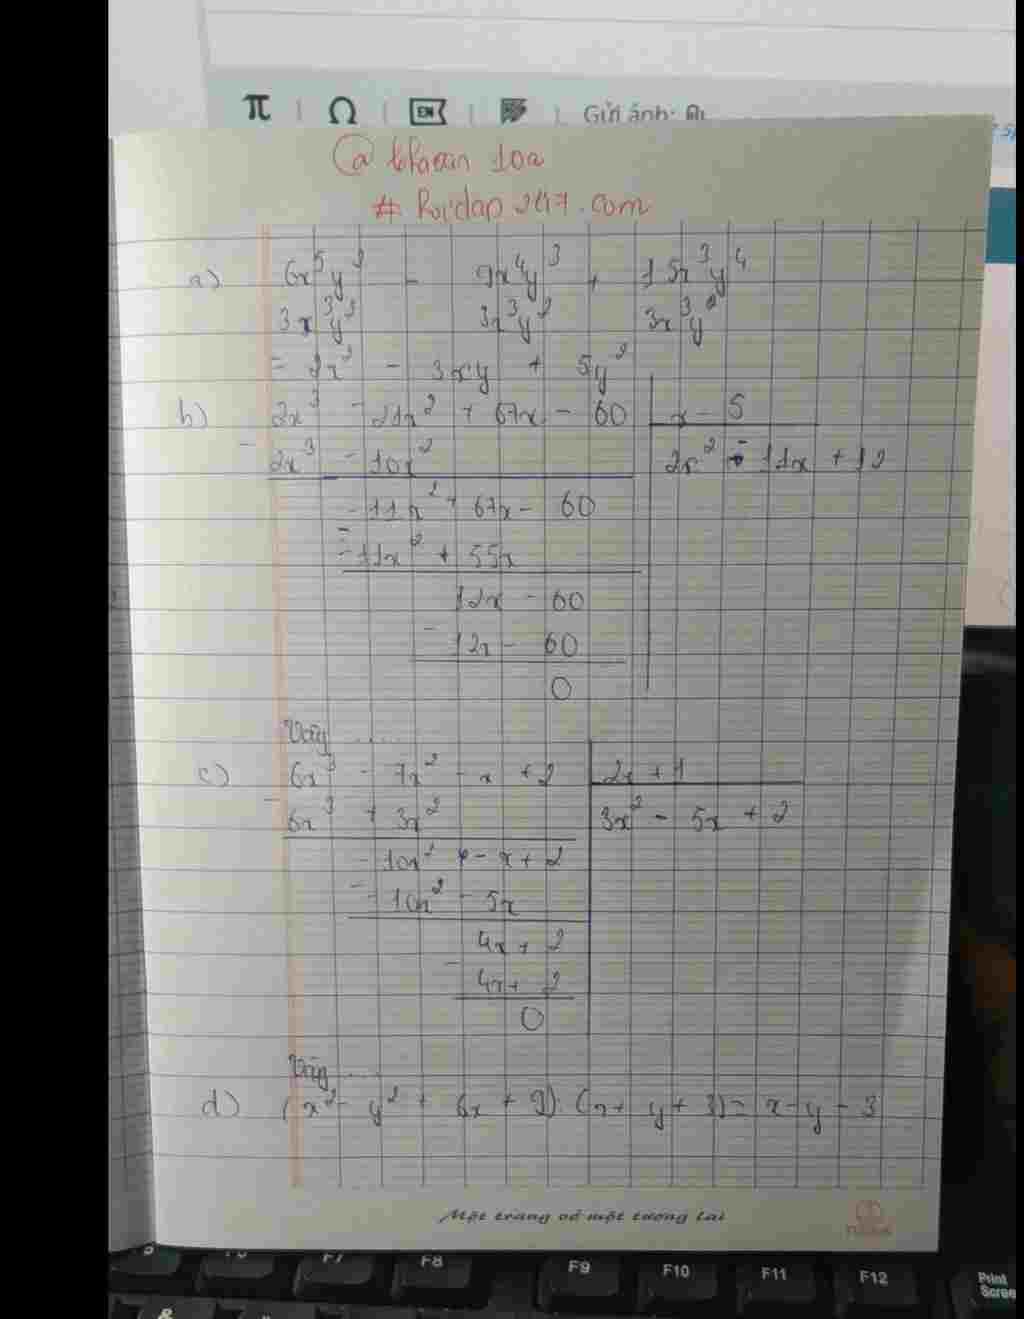 π | Ω | EN | | Gửi ảnh:
@ 10a
# hoidap 247.com
a) 6x⁵y² - 9x⁴y³ + 15x³y⁴
3x³y² 3x³y² 3x³y²
= 2x² - 3xy + 5y²
b) 2x³ - 21x² + 67x - 60 | x - 5
- 2x³ - 10x² 2x² - 11x + 12
- 11x² + 67x - 60
- - 11x² + 55x
12x - 60
- 12x - 60
0
Vậy .....
c) 6x³ - 7x² - x + 2 | 2x + 1
- 6x³ + 3x² 3x² - 5x + 2
- 10x² - x + 2
- - 10x² - 5x
4x + 2
- 4x + 2
0
Vậy ....
d) (x² - y² + 6x + 9) : (x + y + 3) = x - y - 3
Một trang vở một tương lai
F7 F8 F9 F10 F11 F12 Print
Scree
&